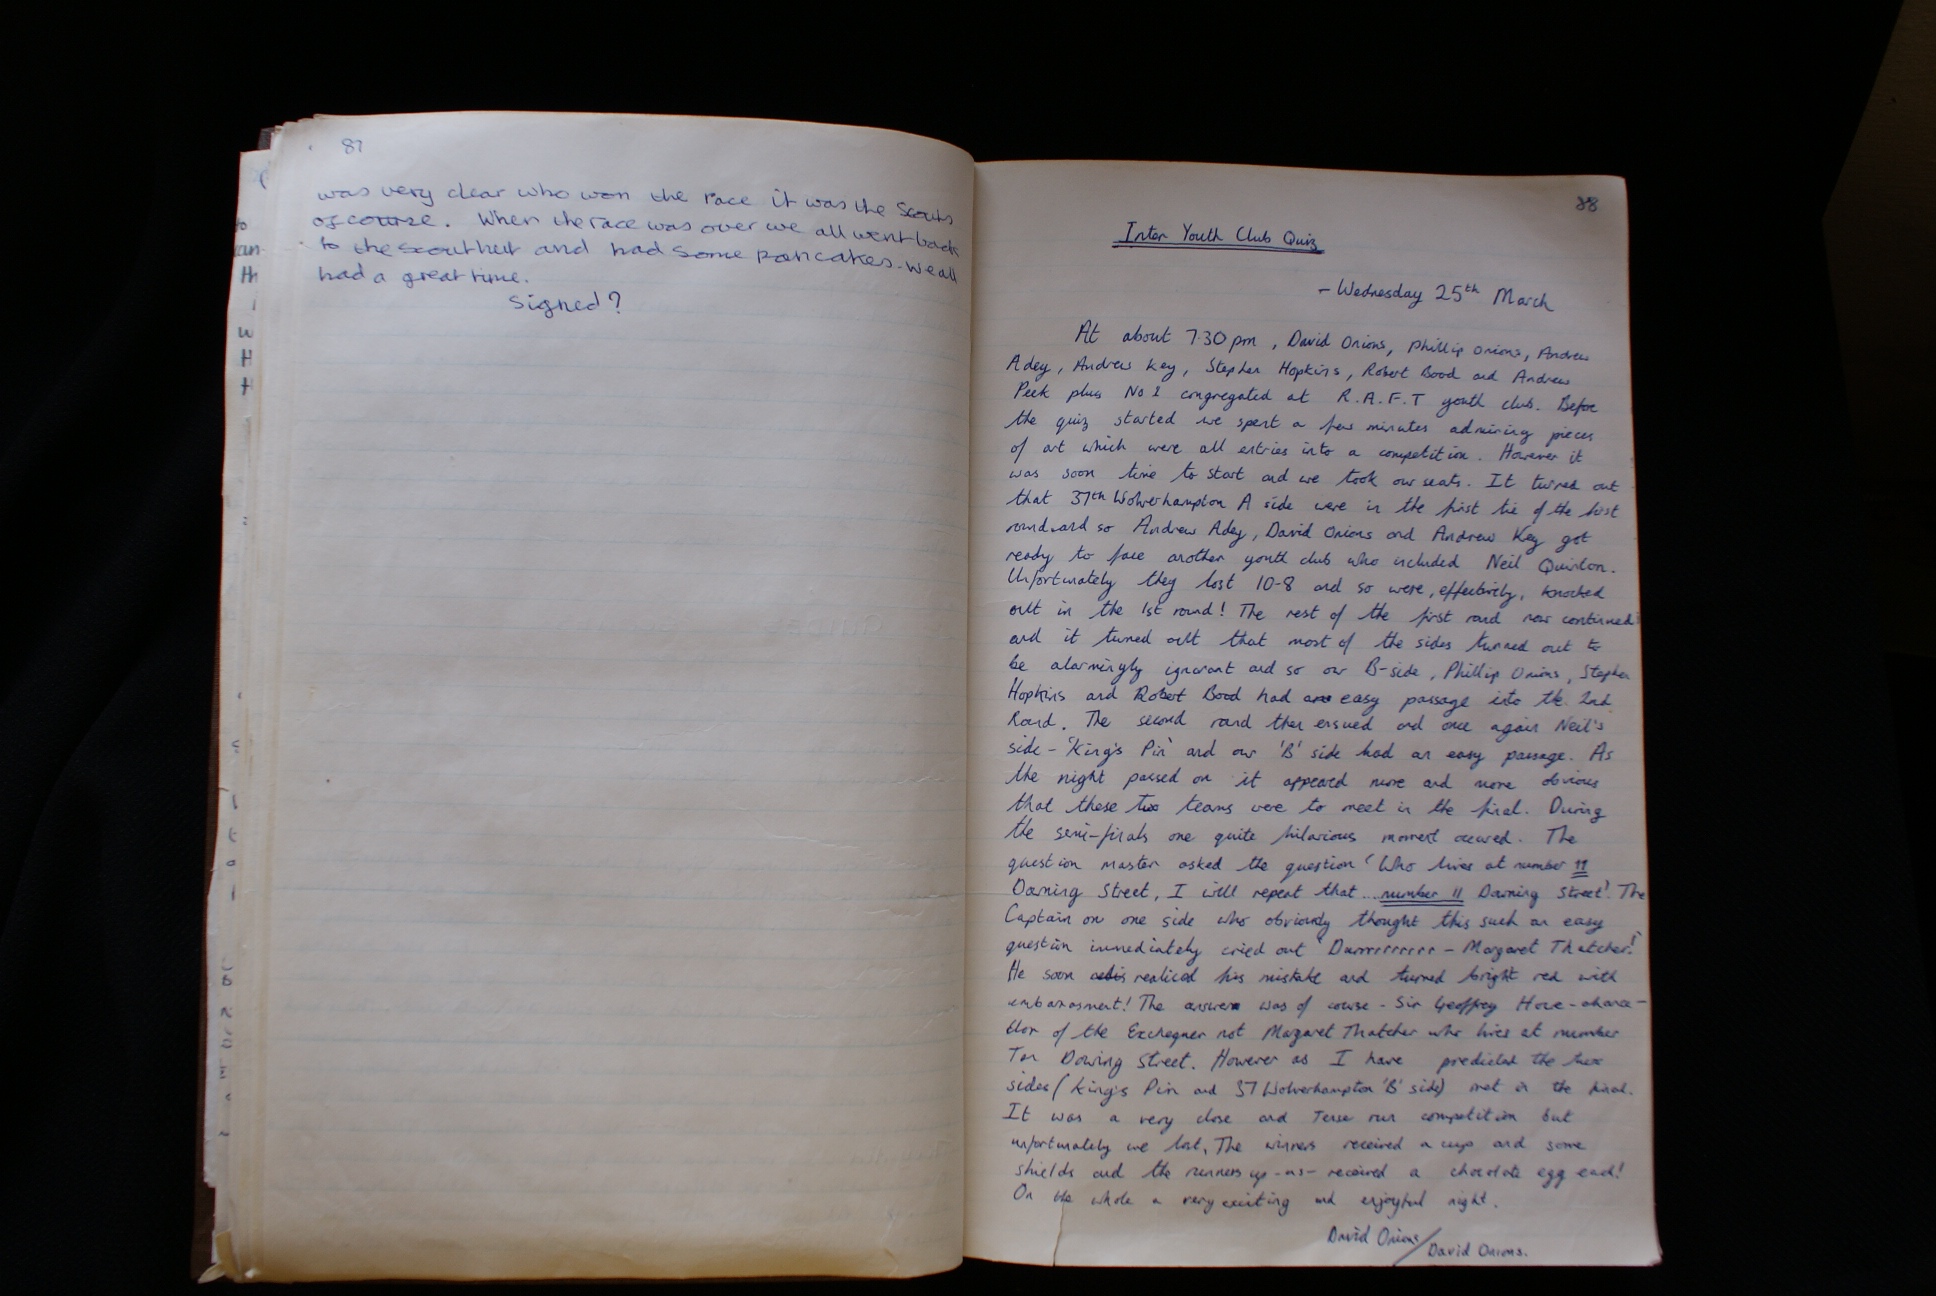 87
was very clear who won the race it was the Scouts
of course. When the race was over we all went back
to the scout hut and had some pancakes. We all
had a great time.
Signed?
88
Inter Youth Club Quiz
- Wednesday 25th March
At about 7.30pm, David Onions, Phillip Onions, Andrew
Adey, Andrew Key, Stephen Hopkins, Robert Bood and Andrew
Peek plus No 1 congregated at R.A.F.T youth club. Before
the quiz started we spent a few minutes admiring pieces
of art which were all entries into a competition. However it
was soon time to start and we took our seats. It turned out
that 37th Wolverhampton A side were in the first tie of the first
round and so Andrew Adey, David Onions and Andrew Key got
ready to face another youth club who included Neil Quinton.
Unfortunately they lost 10-8 and so were, effectively, knocked
out in the 1st round! The rest of the first round now continued
and it turned out that most of the sides turned out to
be alarmingly ignorant and so our B-side, Phillip Onions, Stephen
Hopkins and Robert Bood had an easy passage into the 2nd
Round. The second round then ensued and once again Neil's
side - 'King's Pin' and our 'B' side had an easy passage. As
the night passed on it appeared more and more obvious
that these two teams were to meet in the final. During
the semi-finals one quite hilarious moment occured. The
question master asked the question 'Who lives at number 11
Downing Street, I will repeat that ... number 11 Downing Street'! The
Captain on one side who obviously thought this such an easy
question immediately cried out 'Durrrrrrrrrr - Margaret Thatcher!'
He soon realised his mistake and turned bright red with
embarasment! The answer was of course - Sir Geoffrey Howe - chance-
llor of the Exchequer not Margaret Thatcher who lives at number
Ten Downing Street. However as I have predicted the two
sides (King's Pin and 37 Wolverhampton 'B' side) met in the final.
It was a very close and Tense run competition but
unfortunately we lost, The winners received a cup and some
shields and the runners up -us- received a chocolate egg each!
On the whole a very exciting and enjoyful night.
David Onions/David Onions.